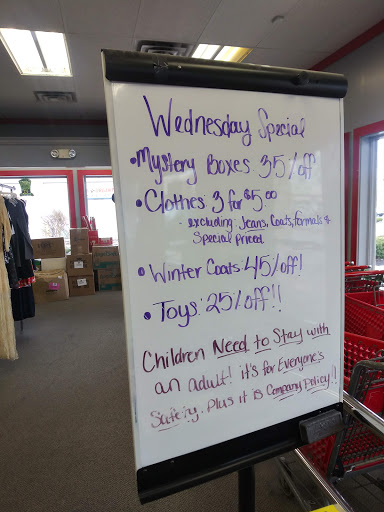 Wednesday Special
• Mystery Boxes 35% off
• Clothes 3 for $5.00
- excluding: Jeans, Coats, formals &
Special Priced
• Winter Coats 45% off!
• Toys: 25% off!!
Children Need to Stay with
an adult! it's for Everyone's
Safety. Plus it is Company Policy!!